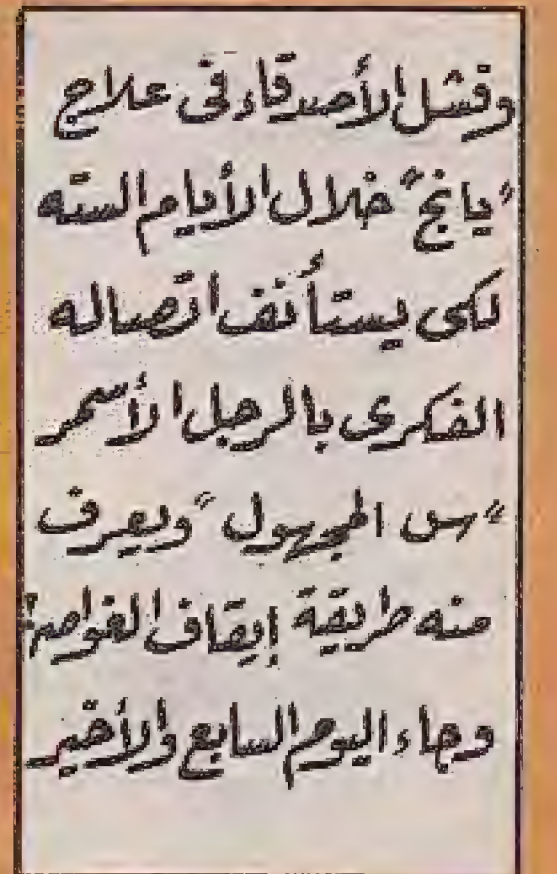 وفشل الأصدقاء فى علاج
"يانج" خلال الأيام الستة
لكى يستأنف اتصاله
الفكرى بالرجل الأسمر
"س المجهول" ويعرف
منه طريقة إيقاف الغواصة
وجاء اليوم السابع والأخير